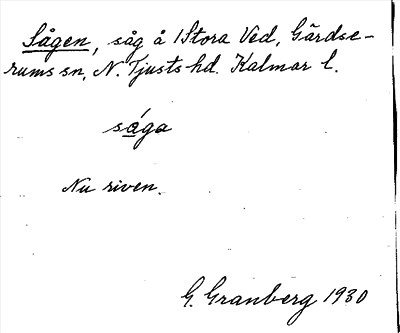 Sågen, såg å 1 Stora Ved, Gärdse-
rums sn, N. Tjusts hd. Kalmar l.
sága
Nu riven.
G. Granberg 1930